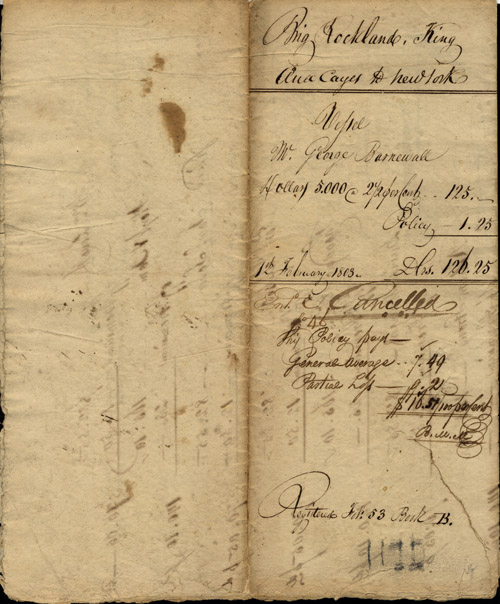 Brig Rockland, King
Aux Cayes to New York
Vessel
Mr. George Barnewall
Dollars 5.000 @ 2½ per Cent .. 125.-
Policy 1.25
1st February 1803. Dlrs. 126.25
Cancelled
This Policy pays —
General Average .. 7.49
Partial Loss —
per Cent
Registered Fol. 53 Book B.